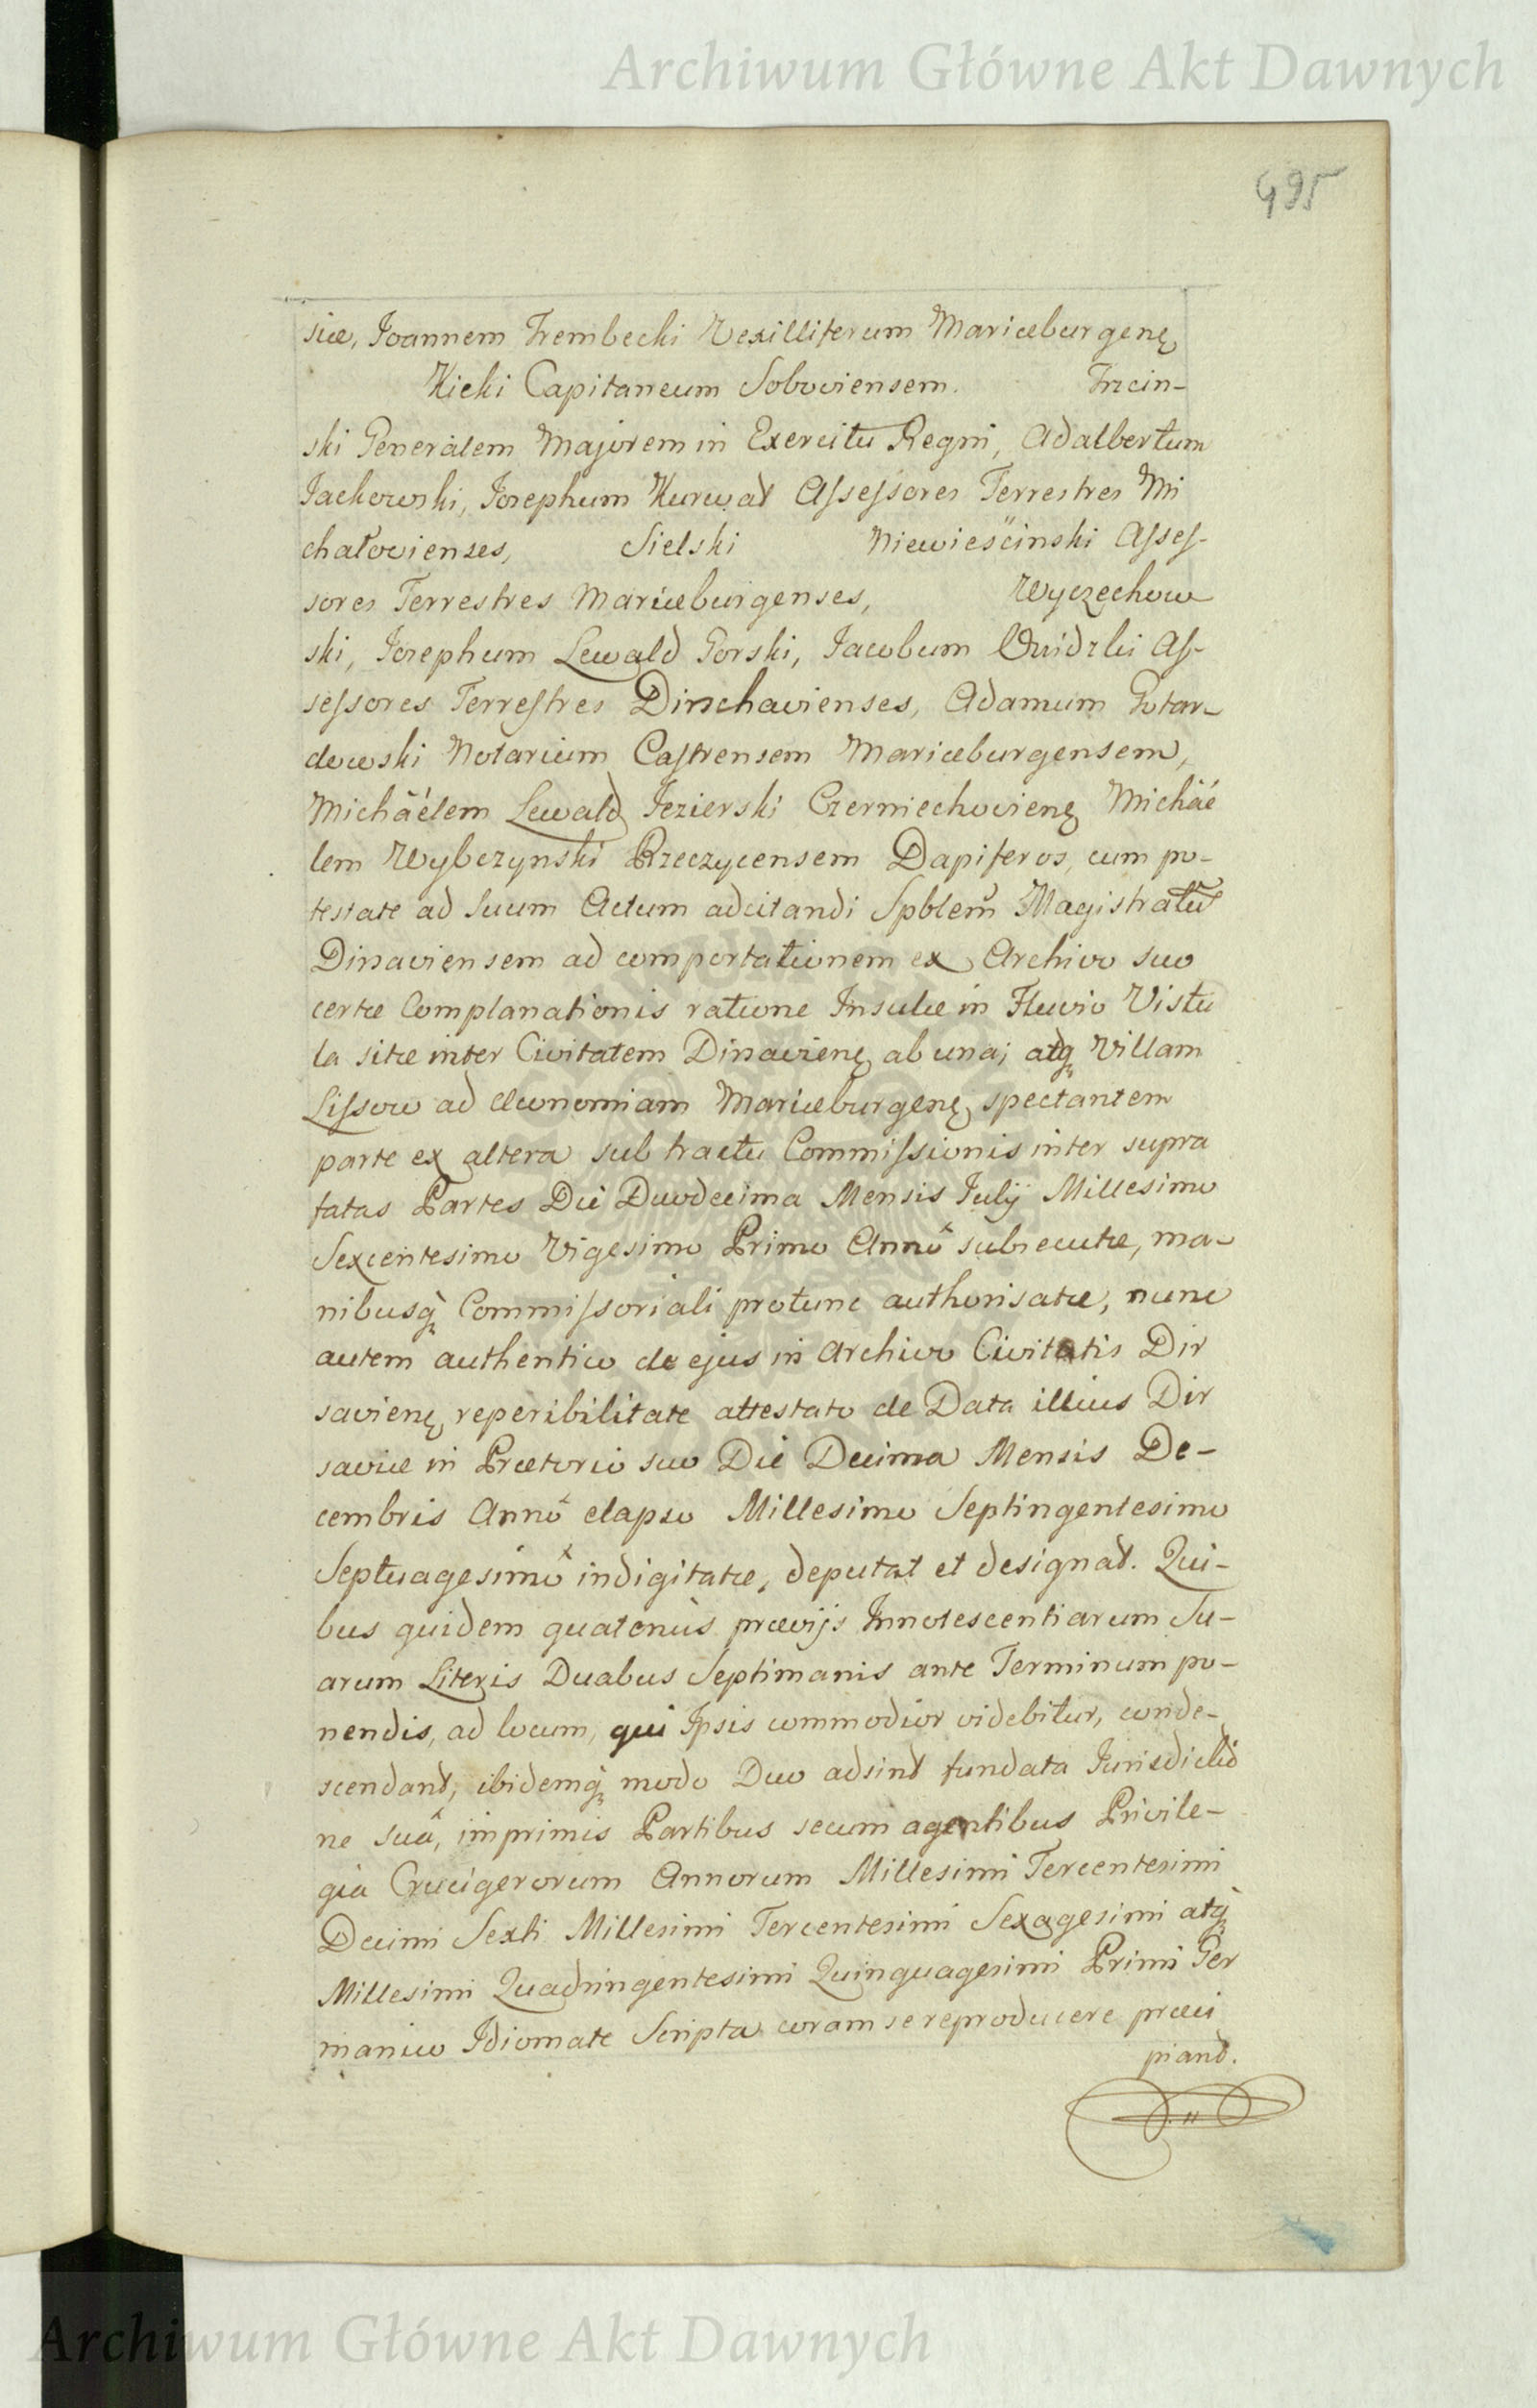 Archiwum Główne Akt Dawnych
495
siæ, Joannem Trembecki Vexilliferum Mariæburgenę
Kicki Capitaneum Soboviensem. Trzcin-
ski Generalem Majorem in Exercitu Regni, Adalbertum
Jackowski, Josephum Kurwat Assessores Terrestres Mi
chałovienses, Sielski Niewieściński Asses-
sores Terrestres Mariæburgenses, Wyczechow
ski, Josephum Lewald Gorski, Jacobum As-
sessores Terrestres Dirschavienses, Adamum Gotar-
dowski Notarium Castrensem Mariæburgensem,
Michäelem Lewald Jezierski Czerniechovienę Michäe
lem Wybczynski Rzeczycensem Dapiferos, cum po-
testate ad suum Actum adcitandi Spblem Magistratũ
Dirsaviensem ad comportationem ex Archivo suo
certæ Complanationis ratione Insulæ in Fluvio Vistu
la sitæ inter Civitatem Dirsavienę ab una; atq Villam
Lissow ad Œconomiam Mariæburgenę spectantem
parte ex altera sub tractu Commissionis inter supra
fatas Partes Die Duodecima Mensis Julij Millesimo
Sexcentesimo Vigesimo Primo Annô subsecutæ, ma-
nibusq̀ Commissoriali protunc authorisatæ, nunc
autem authentico de ejus in Archivo Civitatis Dir
savienę reperibilitate attestato de Data illius Dir
saviæ in Prætorio suo Die Decima Mensis De-
cembris Annô elapso Millesimo Septingentesimo
Septuagesimô indigitatæ, deputat et designat. Qui-
bus quidem quatenùs prævijs Innotescentiarum Su-
arum Literis Duabus Septimanis ante Terminum po-
nendis, ad locum, qui Ipsis commodior videbitur, conde-
scendant, ibidemq̀ modo Duo adsint fundata Jurisdictiõ
ne suâ, imprimis Partibus secum agentibus Privile-
gia Crucigerorum Annorum Millesimi Tercentesimi
Decimi Sexti Millesimi Tercentesimi Sexagesimi atq̀
Millesimi Quadringentesimi Quinquagesimi Primi Ger
manico Idiomate Scripta coram se reproducere præci
piant.
Archiwum Główne Akt Dawnych